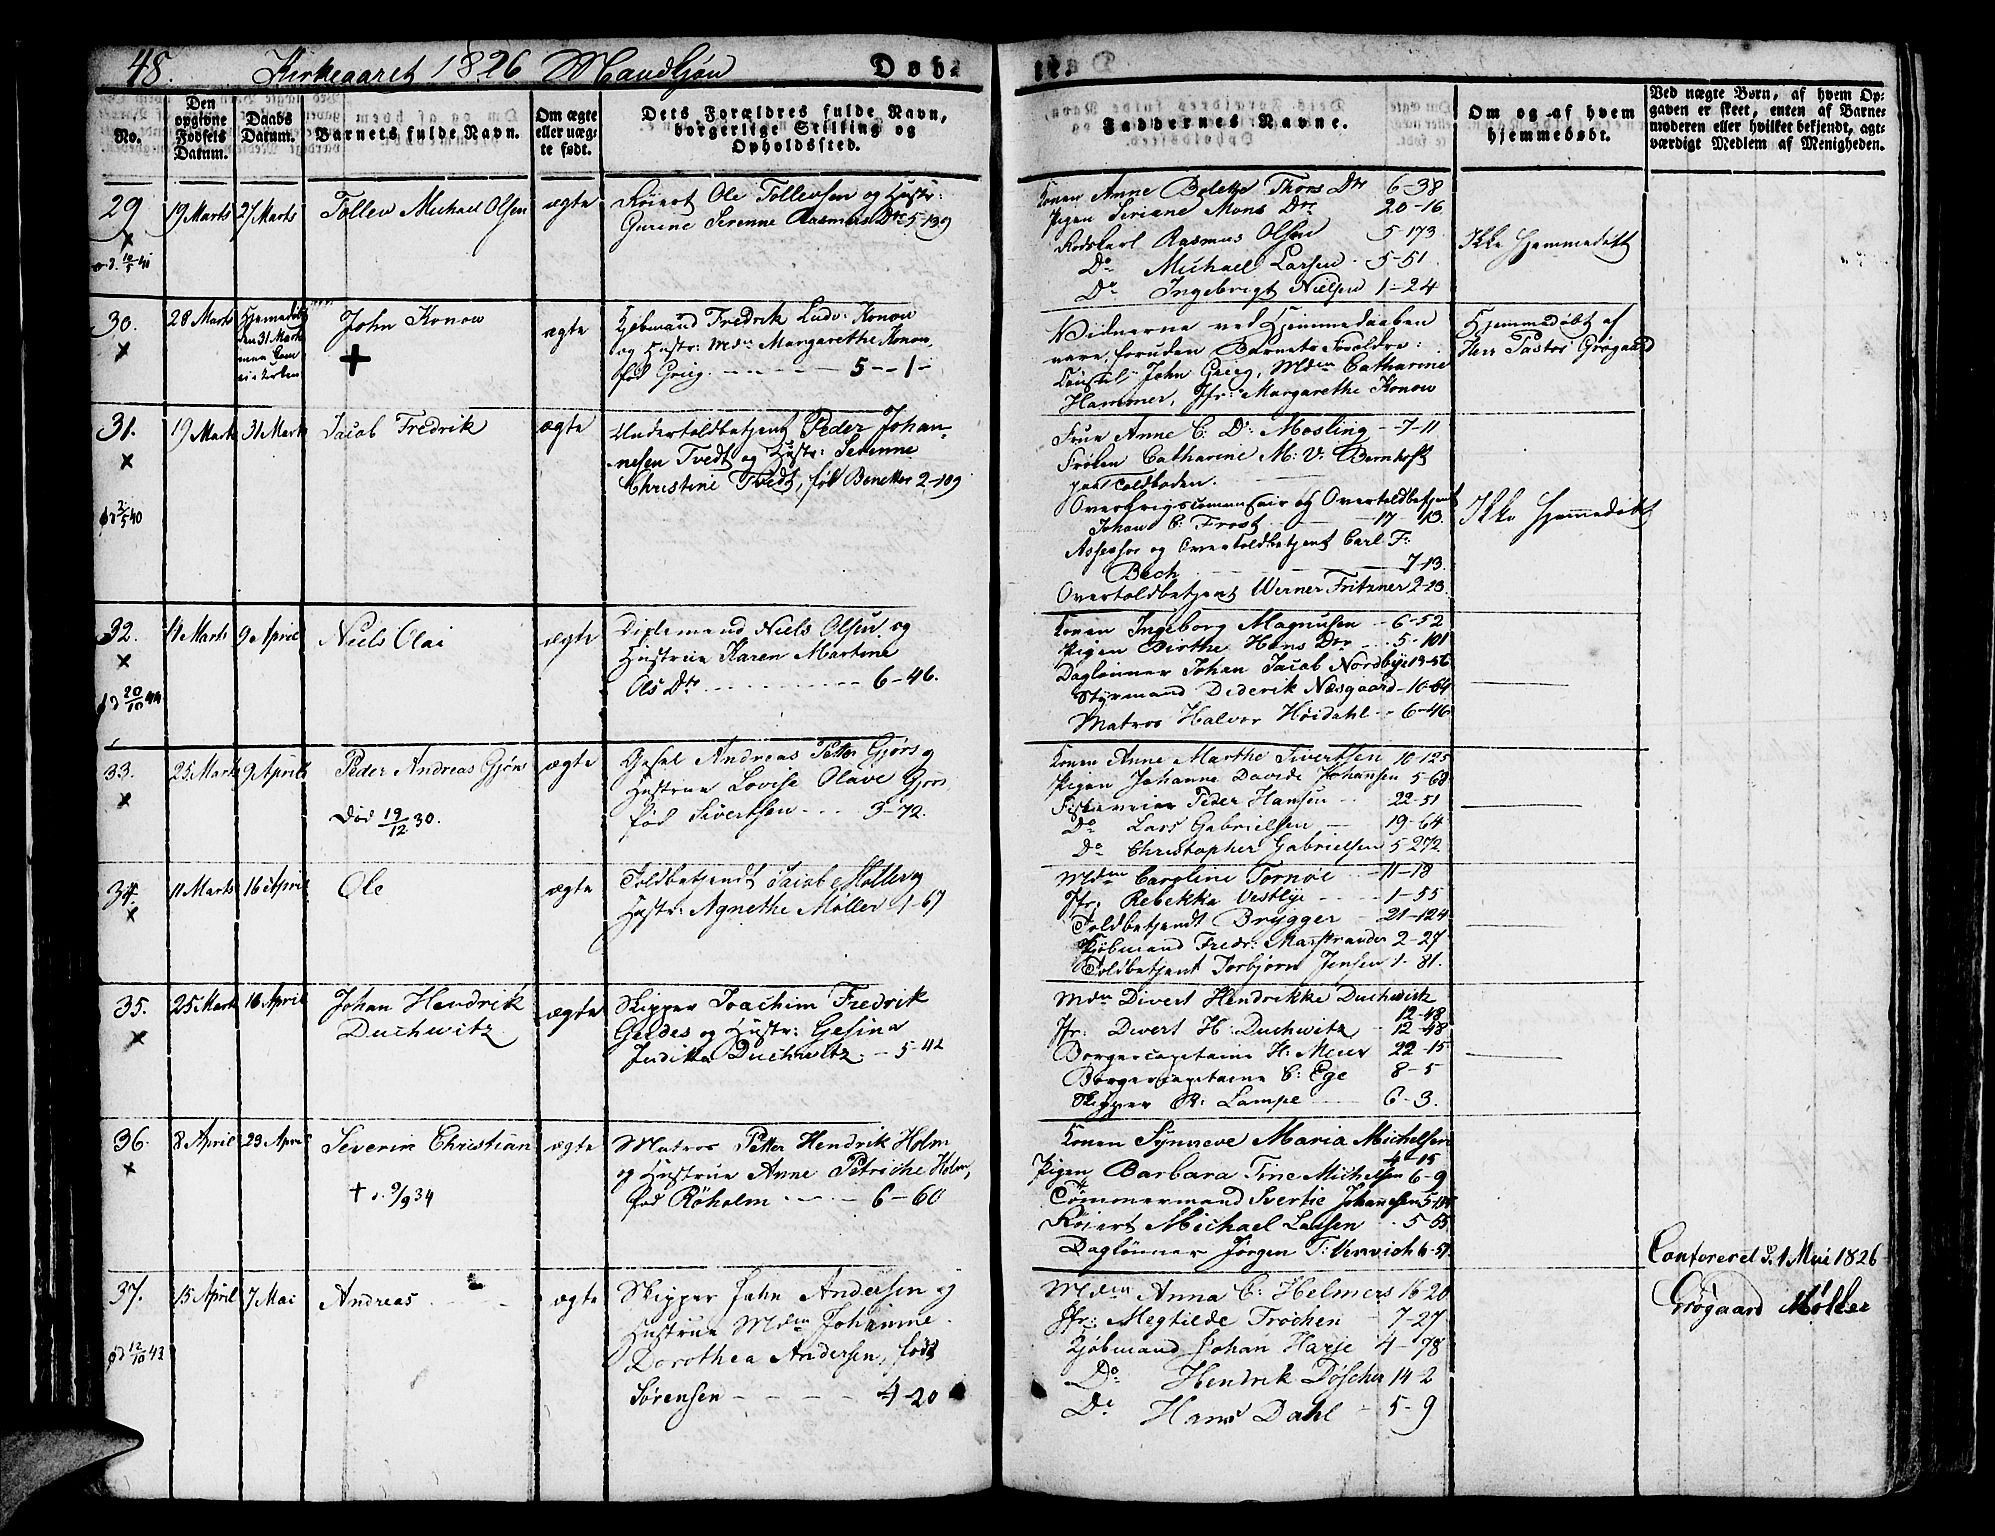 48. Kirkeaaret 1826 Mandkjøn Døbte.
No.
Den opgivne Fødsels Datum.
Daabs Datum.
Barnets fulde Navn.
Om ægte eller uægte født.
Dets Forældres fulde Navn, borgerlige Stilling og Opholdssted.
Faddernes Navne.
Om og af hvem hjemmedøbt.
Ved uægte Børn, af hvem Opgaven er skeet, enten af Barnemoderen eller hvilket bekjendt, agtværdigt Medlem af Menigheden.
29
19 Marts
27 Marts
Tollev Michael Olsen
ægte
Røiert Ole Tollevsen og Hustr:
Gurine Serenne Rasmus Dtr 5-139
Konen Anne Bolette Thors Dtr 6-38
Pigen Seriane Mons Dtr 20-16
Rodskarl Rasmus Olsen 5-173
Do Michael Larsen 5-51
Do Ingebrigt Nielsen 1-24
Ikke Hjemmedøbt
30.
28 Marts
Hjemmedøbt
den 31 Marts
John Konow
ægte
Kjøbmand Fredrik Ludv: Konow
og Hustr: Mdm Margarethe Konow,
fød Grieg. 5-1-
Vidnerne ved Hjemmedaaben
vare, foruden Barnets Forældre:
Consul John Grieg, Mdm Catharine
Hammer, Jfr: Margarethe Konow
Hjemmedøbt af
Herr Pastor Grøgaard
31.
19 Marts
31 Marts
Jacob Fredrik
ægte
Undertoldbetjent Peder Johan-
nesen Tvedt og Hustr: Serenne
Christine Tvedt, fød Benetter 2-109
Frue Anne C. D: Mosling 7-11
Frøken Catharine M: V: Bernhoft
paa Toldboden.
Overkrigscommissair og Overtoldbetjent
Johan C: Frost 17-13.
Assessor og Overtoldbetjent Carl F:
Bech 7-13.
Overtoldbetjent Werner Fritzner 2-23.
Ikke Hjemmedøbt
d 2/5 40
32.
11 Marts
9 April
Niels Olai
ægte
Niels Olsen og
Hustrue Karen Martine
Ols Dtr 6-46.
Konen Ingeborg Magnusen 6-52
Pigen Birthe Hans Dtr 5-101
Daglønner Johan Jacob Nordbye 19-56
Styrmand Diderik Næsgaard 10-64
Matros Halvor Høidahl 6-46
d 20/10 44
33.
25 Marts
9 April
Peder Andreas Gjørs
Død 19/12 30.
ægte
Gesel Andreas Petter Gjørs og
Hustrue Lovise Olave Gjørs
fød Sivertsen 3-72.
Konen Anne Marthe Sivertsen 10-125
Pigen Johanne Davide Johansen 5-68
Peder Hansen 22-51
Do Lars Gabrielsen 19-64
Do Christopher Gabrielsen 5-272
34.
11 Marts
16 April
Ole
ægte
Toldbetjendt Jacob Møller og
Hustr: Agnethe Møller 1-67
Mdm Caroline Tornøe 11-18
Jfr: Rebekka Vestlye 1-55
Toldbetjendt Brygger 21-124
Kjøbmand Fredr: Marstrander 2-27
Toldbetjent Torbjørn Jensen 1-81.
35.
25 Marts
16 April
Johan Hendrik
Duchwitz
ægte
Skipper Joachim Fredrik
Geldes og Hustr: Gesina
Juditta Duchwitz 5-42
Mdm Divert Hendrikke Duchwitz
12-48
Jfr: Divert H: Duchwitz 12-48
Borgercapitaine H: Meier 22-15
Borgercapitaine C: Ege 8-5
Skipper R: Lampe 6-3.
36.
8 April
23 April
Severin Christian
ægte
Matros Petter Hendrik Holm
og Hustrue Anne Petriche Holm,
fød Røholm 6-60
Konen Synneve Maria Michelsen
4-15
Pigen Barbara Tine Michelsen 6-9
Tømmermand Svertie Johannesen
Røiert Michael Larsen 5-55
Daglønner Jørgen T: Vervich 6-51
37.
15 April
7 Mai
Andreas
ægte
Skipper John Andersen og
Hustrue Mdm Johanne
Dorothea Andersen, fød
Sørensen 4-20
Mdm Anna C: Helmers 16-20
Jfr: Megtilde Trøchen 7-27
Kjøbmand Johan Harje 4-78
Do Hendrik Døscher 14-2
Do Hans Dahl 5-9
d 12/10 42
Confereret d: 1 Mai 1826
Grøgaard Møller